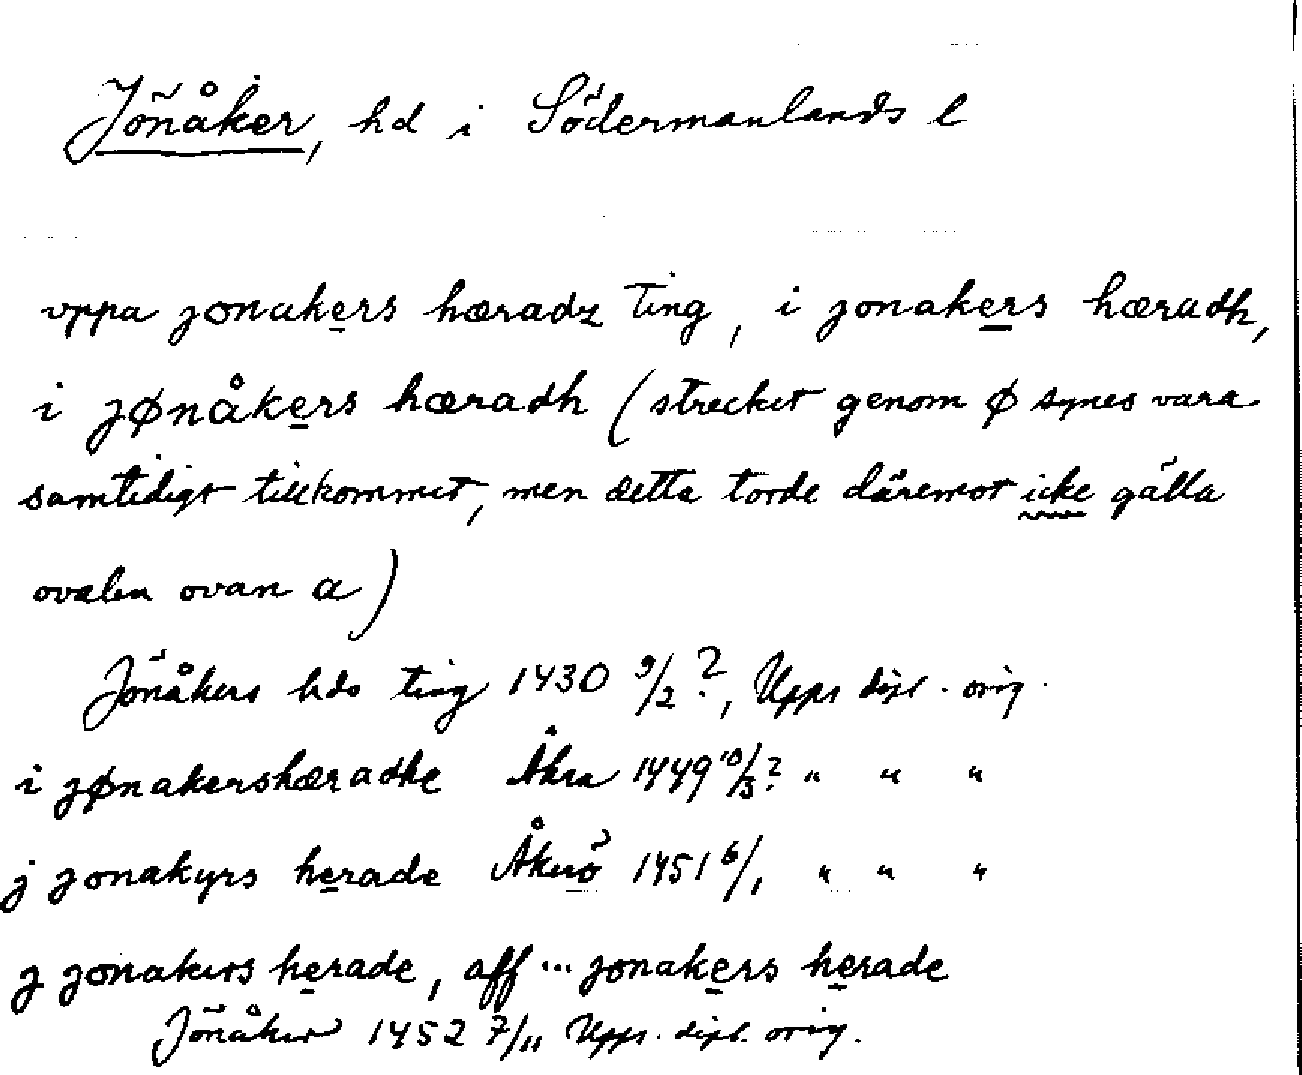 Jönåker, hd i Södermanlands l
vppa jonakers hæradz ting, i jonakers hæradh,
i jønåkers hæradh (strecket genom ø synes vara
samtidigt tillkommet, men detta torde däremot icke gälla
ovalen ovan a)
Jönåkers hds ting 1430 9/2 ?, Upps dipl. orig.
i jønakershæradhe 1449 10/3? " " "
j jonakyrs herade Åkerö 1451 6/1 " " "
j jonakers herade, aff ... jonakers herade
Jönåker 1452 7/11 Upps. dipl. orig.